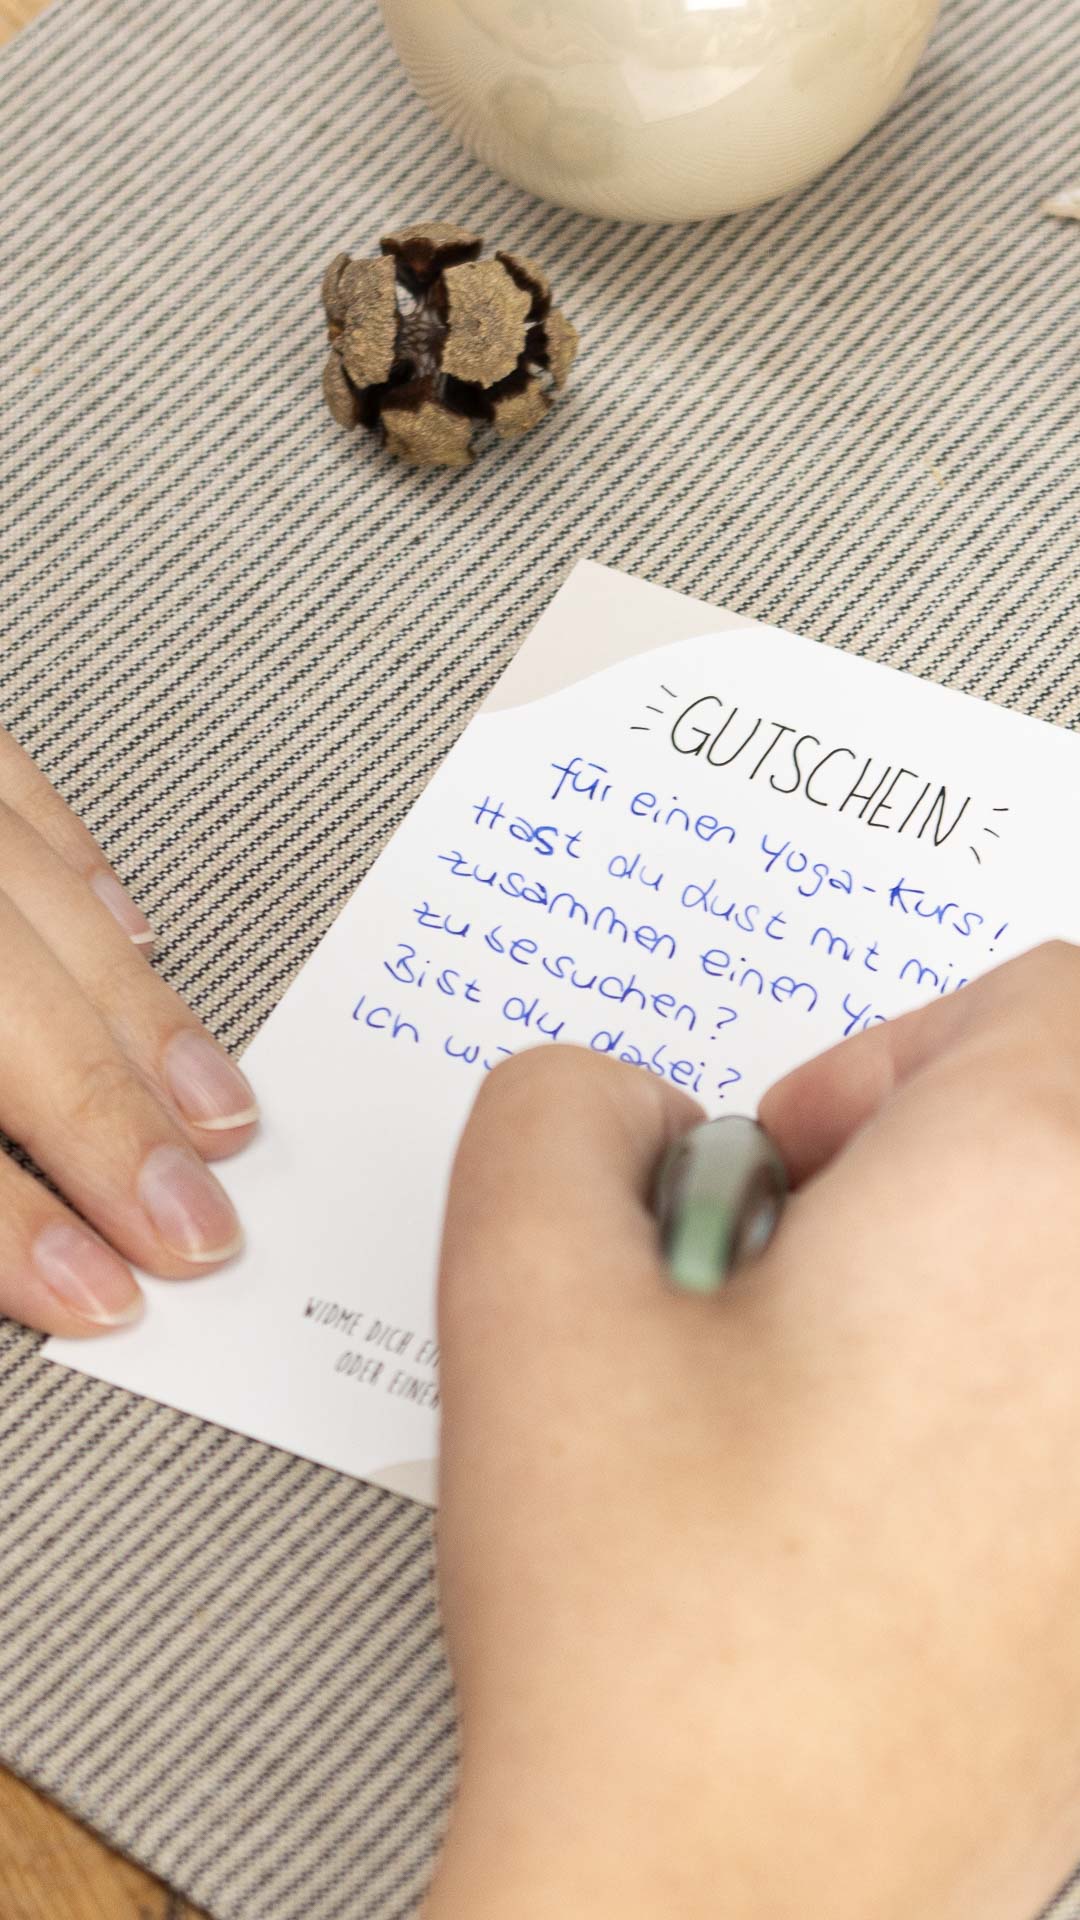 GUTSCHEIN
für einen Yoga-Kurs!
Hast du Lust mit mir
zusammen einen
zu besuchen?
Bist du dabei?
Ich
WIDME DICH
ODER EINER